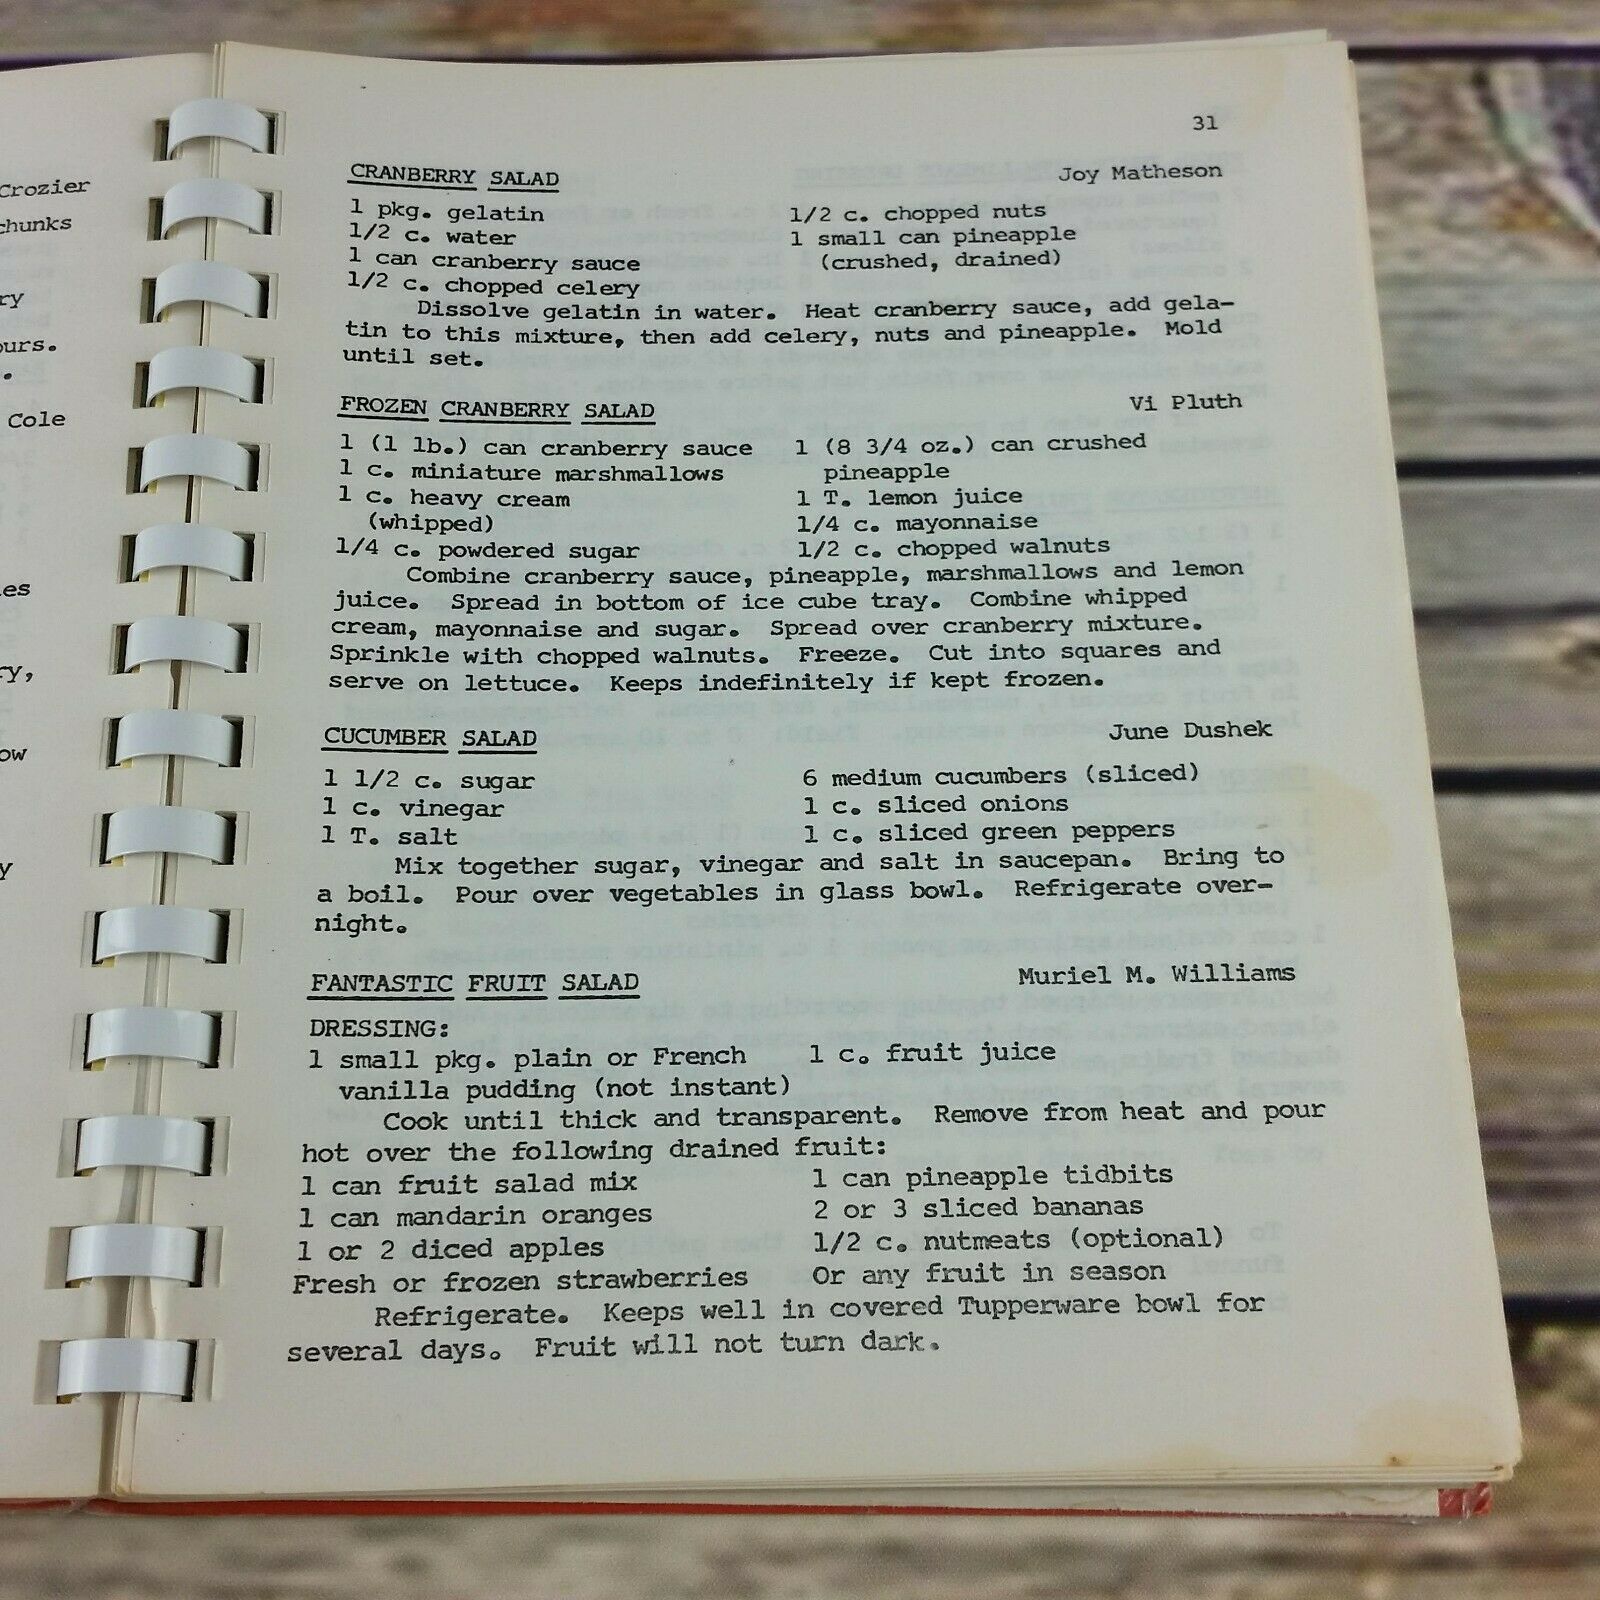 Crozier
chunks
ry
ours.
.
Cole
es
ry,
ow
y
31
CRANBERRY SALAD Joy Matheson
1 pkg. gelatin 1/2 c. chopped nuts
1/2 c. water 1 small can pineapple
1 can cranberry sauce (crushed, drained)
1/2 c. chopped celery
Dissolve gelatin in water. Heat cranberry sauce, add gela-
tin to this mixture, then add celery, nuts and pineapple. Mold
until set.
FROZEN CRANBERRY SALAD Vi Pluth
1 (1 lb.) can cranberry sauce 1 (8 3/4 oz.) can crushed
1 c. miniature marshmallows pineapple
1 c. heavy cream 1 T. lemon juice
(whipped) 1/4 c. mayonnaise
1/4 c. powdered sugar 1/2 c. chopped walnuts
Combine cranberry sauce, pineapple, marshmallows and lemon
juice. Spread in bottom of ice cube tray. Combine whipped
cream, mayonnaise and sugar. Spread over cranberry mixture.
Sprinkle with chopped walnuts. Freeze. Cut into squares and
serve on lettuce. Keeps indefinitely if kept frozen.
CUCUMBER SALAD June Dushek
1 1/2 c. sugar 6 medium cucumbers (sliced)
1 c. vinegar 1 c. sliced onions
1 T. salt 1 c. sliced green peppers
Mix together sugar, vinegar and salt in saucepan. Bring to
a boil. Pour over vegetables in glass bowl. Refrigerate over-
night.
FANTASTIC FRUIT SALAD Muriel M. Williams
DRESSING:
1 small pkg. plain or French 1 c. fruit juice
vanilla pudding (not instant)
Cook until thick and transparent. Remove from heat and pour
hot over the following drained fruit:
1 can fruit salad mix 1 can pineapple tidbits
1 can mandarin oranges 2 or 3 sliced bananas
1 or 2 diced apples 1/2 c. nutmeats (optional)
Fresh or frozen strawberries Or any fruit in season
Refrigerate. Keeps well in covered Tupperware bowl for
several days. Fruit will not turn dark.